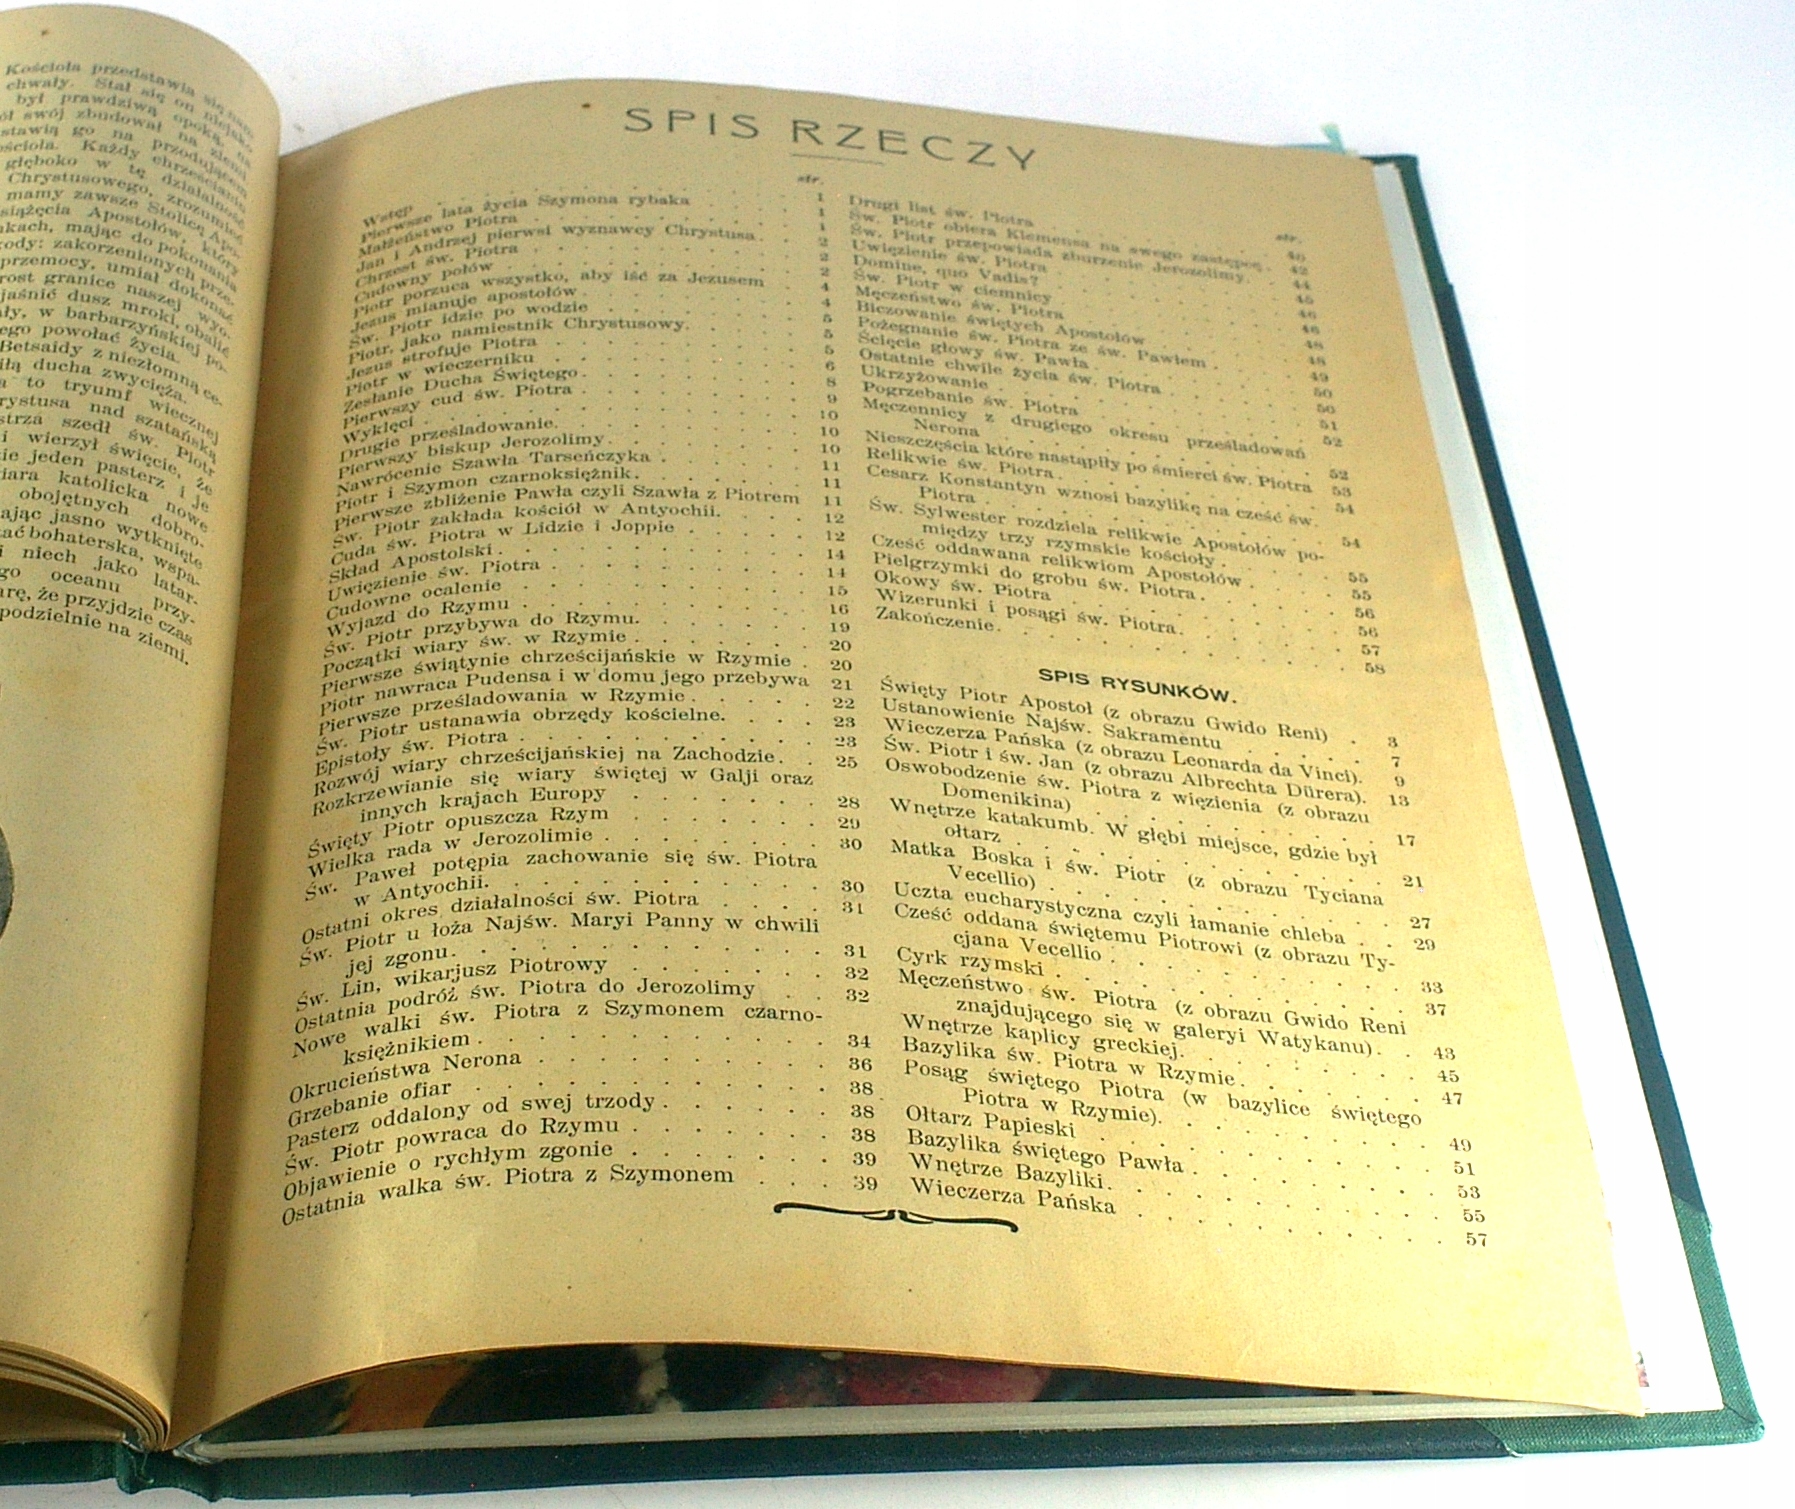 Kościoła przedstawia się nam
chwały. Stał się on niejako
był prawdziwą opoką, na
swój zbudował na ziemi
stawią go na przodującem
Każdy chrześcianin
głęboko w tę działalność
Chrystusowego, zrozumieć
mamy zawsze Stolicę Apo-
Apostołów, który
mając do pokonania
zakorzenionych prze-
przemocy, umiał dokonać
granice naszej wyo-
jaśnić dusz mroki, obalić
w barbarzyńskiej po-
powołać życia.
Betsaidy z niezłomną ce-
ducha zwycięża.
to tryumf wiecznej
nad szatańską
szedł św. Piotr
i wierzył święcie, że
jeden pasterz i je
katolicka nowe
obojętnych dobro-
jasno wytknięte
bohaterska, wspa-
i niech jako latar-
oceanu przy-
że przyjdzie czas
podzielnie na ziemi.
SPIS RZECZY
str.
Wstęp 1
Pierwsze lata życia Szymona rybaka 1
Małżeństwo Piotra 1
Jan i Andrzej pierwsi wyznawcy Chrystusa 2
Chrzest św. Piotra 2
Cudowny połów 2
Piotr porzuca wszystko, aby iść za Jezusem 4
Jezus mianuje apostołów 4
Św. Piotr idzie po wodzie 5
Piotr, jako namiestnik Chrystusowy 5
Jezus strofuje Piotra 5
Piotr w wieczerniku 6
Zesłanie Ducha Świętego 8
Pierwszy cud św. Piotra 9
Wyklęci 10
Drugie prześladowanie 10
Pierwszy biskup Jerozolimy 10
Nawrócenie Szawła Tarseńczyka 11
Piotr i Szymon czarnoksiężnik 11
Pierwsze zbliżenie Pawła czyli Szawła z Piotrem 11
Św. Piotr zakłada kościół w Antyochii 12
Cuda św. Piotra w Lidzie i Joppie 12
Skład Apostolski 14
Uwięzienie św. Piotra 14
Cudowne ocalenie 15
Wyjazd do Rzymu 16
Św. Piotr przybywa do Rzymu 19
Początki wiary św. w Rzymie 20
Pierwsze świątynie chrześcijańskie w Rzymie 20
Piotr nawraca Pudensa i w domu jego przebywa 21
Pierwsze prześladowania w Rzymie 22
Św. Piotr ustanawia obrzędy kościelne 23
Epistoły św. Piotra 23
Rozwój wiary chrześcijańskiej na Zachodzie 25
Rozkrzewianie się wiary świętej w Galji oraz
innych krajach Europy 28
Święty Piotr opuszcza Rzym 29
Wielka rada w Jerozolimie 30
Św. Paweł potępia zachowanie się św. Piotra
w Antyochii 30
Ostatni okres działalności św. Piotra 31
Św. Piotr u łoża Najśw. Maryi Panny w chwili
jej zgonu 31
Św. Lin, wikarjusz Piotrowy 32
Ostatnia podróż św. Piotra do Jerozolimy 32
Nowe walki św. Piotra z Szymonem czarno-
księżnikiem 34
Okrucieństwa Nerona 36
Grzebanie ofiar 38
Pasterz oddalony od swej trzody 38
Św. Piotr powraca do Rzymu 38
Objawienie o rychłym zgonie 39
Ostatnia walka św. Piotra z Szymonem 39
str.
Drugi list św. Piotra 40
Św. Piotr obiera Klemensa na swego zastępcę 42
Św. Piotr przepowiada zburzenie Jerozolimy 44
Uwięzienie św. Piotra 45
Domine, quo Vadis? 46
Św. Piotr w ciemnicy 46
Męczeństwo św. Piotra 48
Biczowanie świętych Apostołów 48
Pożegnanie św. Piotra ze św. Pawłem 49
Ścięcie głowy św. Pawła 50
Ostatnie chwile życia św. Piotra 50
Ukrzyżowanie 51
Pogrzebanie św. Piotra 52
Męczennicy z drugiego okresu prześladowań
Nerona 52
Nieszczęścia które nastąpiły po śmierci św. Piotra 53
Relikwie św. Piotra 54
Cesarz Konstantyn wznosi bazylikę na cześć św.
Piotra 54
Św. Sylwester rozdziela relikwie Apostołów po-
między trzy rzymskie kościoły 55
Cześć oddawana relikwiom Apostołów 55
Pielgrzymki do grobu św. Piotra 56
Okowy św. Piotra 56
Wizerunki i posągi św. Piotra 57
Zakończenie 58
SPIS RYSUNKÓW.
Święty Piotr Apostoł (z obrazu Gwido Reni) 3
Ustanowienie Najśw. Sakramentu 7
Wieczerza Pańska (z obrazu Leonarda da Vinci) 9
Św. Piotr i św. Jan (z obrazu Albrechta Dürera) 13
Oswobodzenie św. Piotra z więzienia (z obrazu
Domenikina) 17
Wnętrze katakumb. W głębi miejsce, gdzie był
ołtarz 21
Matka Boska i św. Piotr (z obrazu Tyciana
Vecellio) 27
Uczta eucharystyczna czyli łamanie chleba 29
Cześć oddana świętemu Piotrowi (z obrazu Ty-
cjana Vecellio 33
Cyrk rzymski 37
Męczeństwo św. Piotra (z obrazu Gwido Reni
znajdującego się w galeryi Watykanu) 43
Wnętrze kaplicy greckiej 45
Bazylika św. Piotra w Rzymie 47
Posąg świętego Piotra (w bazylice świętego
Piotra w Rzymie) 49
Ołtarz Papieski 51
Bazylika świętego Pawła 53
Wnętrze Bazyliki 55
Wieczerza Pańska 57